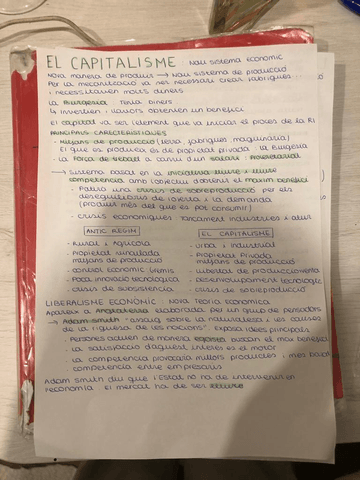 EL CAPITALISME Nou sistema econòmic
Nova manera de produir → Nou sistema de producció
Per la mecanització va ser necessari crear fàbriques
i necessitaven molts diners
La Burgesia tenia diners
↳ inverteix i llavors obtenien un benefici
El capital va ser l'element que va iniciar el procés de la RI
PRINCIPALS CARACTERÍSTIQUES
· Mitjans de producció (terra, fàbriques, maquinària)
El que es produeix és de propietat privada: la Burgesia
· La força de treball a canvi d'un salari: Proletariat
→ Sistema basat en la iniciativa lliure i lliure
competència amb l'objectiu d'obtenir el màxim benefici
· Patia una crisis de sobreproducció per els
desequilibris de l'oferta i la demanda
(produir més del que es pot consumir)
· crisis econòmiques: tancament indústries i atur
ANTIC REGIM
· Rural i Agrícola
· Propietat vinculada
mitjans de producció
· control Econòmic Gremis
· Poca innovació tecnològica
· crisis de subsistència
EL CAPITALISME
· Urbà i Industrial
· Propietat Privada
mitjans de producció
· llibertat de producció
· Desenvolupament tecnològic
· crisis de sobreproducció
LIBERALISME ECONÒMIC: Nova teoria econòmica
Apareix a Anglaterra elaborada per un grup de pensadors
→ Adam Smith: assaig sobre la naturalesa i les causes
de la riquesa de les nacions". Exposa idees principals
· Persones actuen de manera egoista, busquen el màx benefici
· La satisfacció d'aquest interès és el motor
· La competència provocaria millors productes i més barat
competència entre empresaris
Adam Smith diu que l'Estat no ha de intervenir en
l'economia. El mercat ha de ser lliure